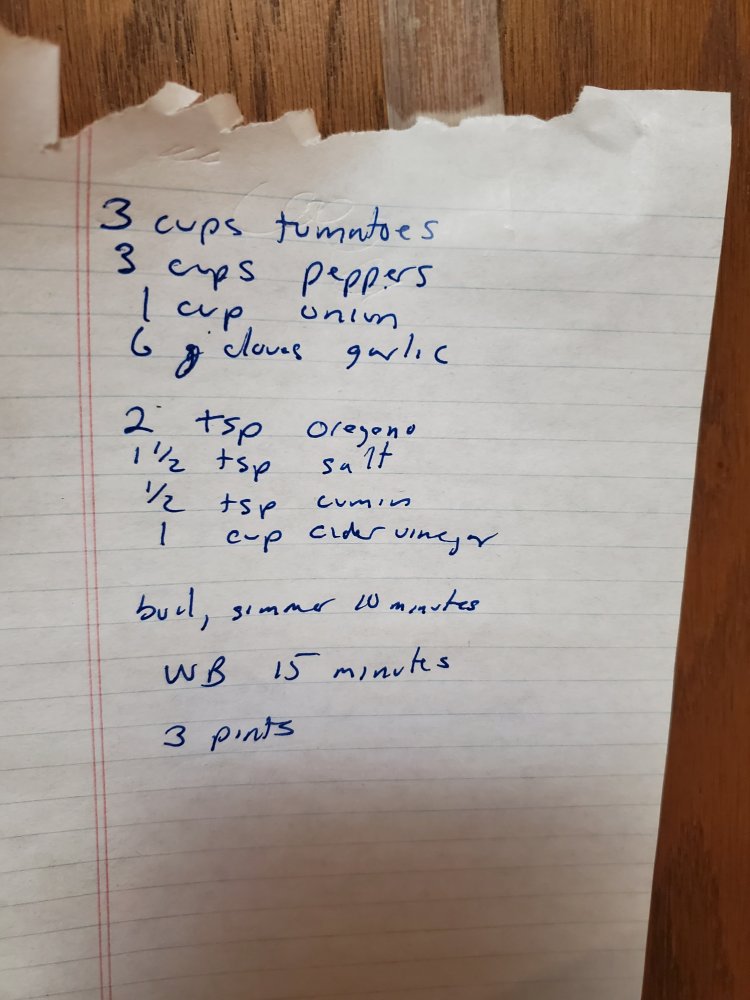 3 cups tumatoes
3 cups peppers
1 cup onion
6 cloves garlic
2 tsp oregano
1 1/2 tsp salt
1/2 tsp cumin
1 cup cider vinegar
boil, simmer 10 minutes
WB 15 minutes
3 pints